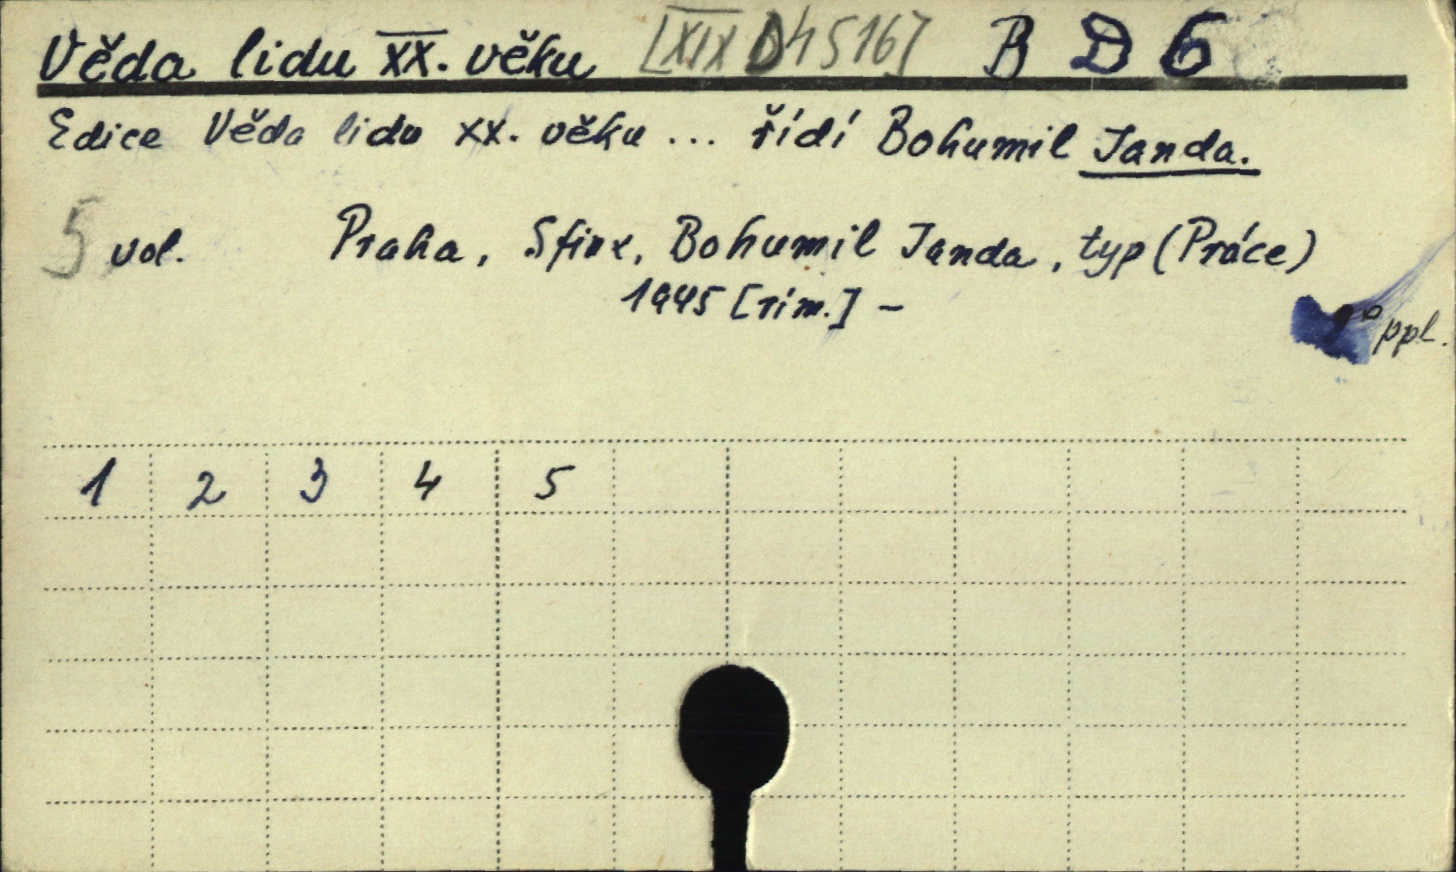 Věda lidu XX. věku [XIX D 4516] B D 6
Edice Věda lidu XX. věku ... řídí Bohumil Janda.
5 vol. Praha, Sfinx, Bohumil Janda, typ (Práce)
1945 [rim.] -
8° ppl.
1 2 3 4 5